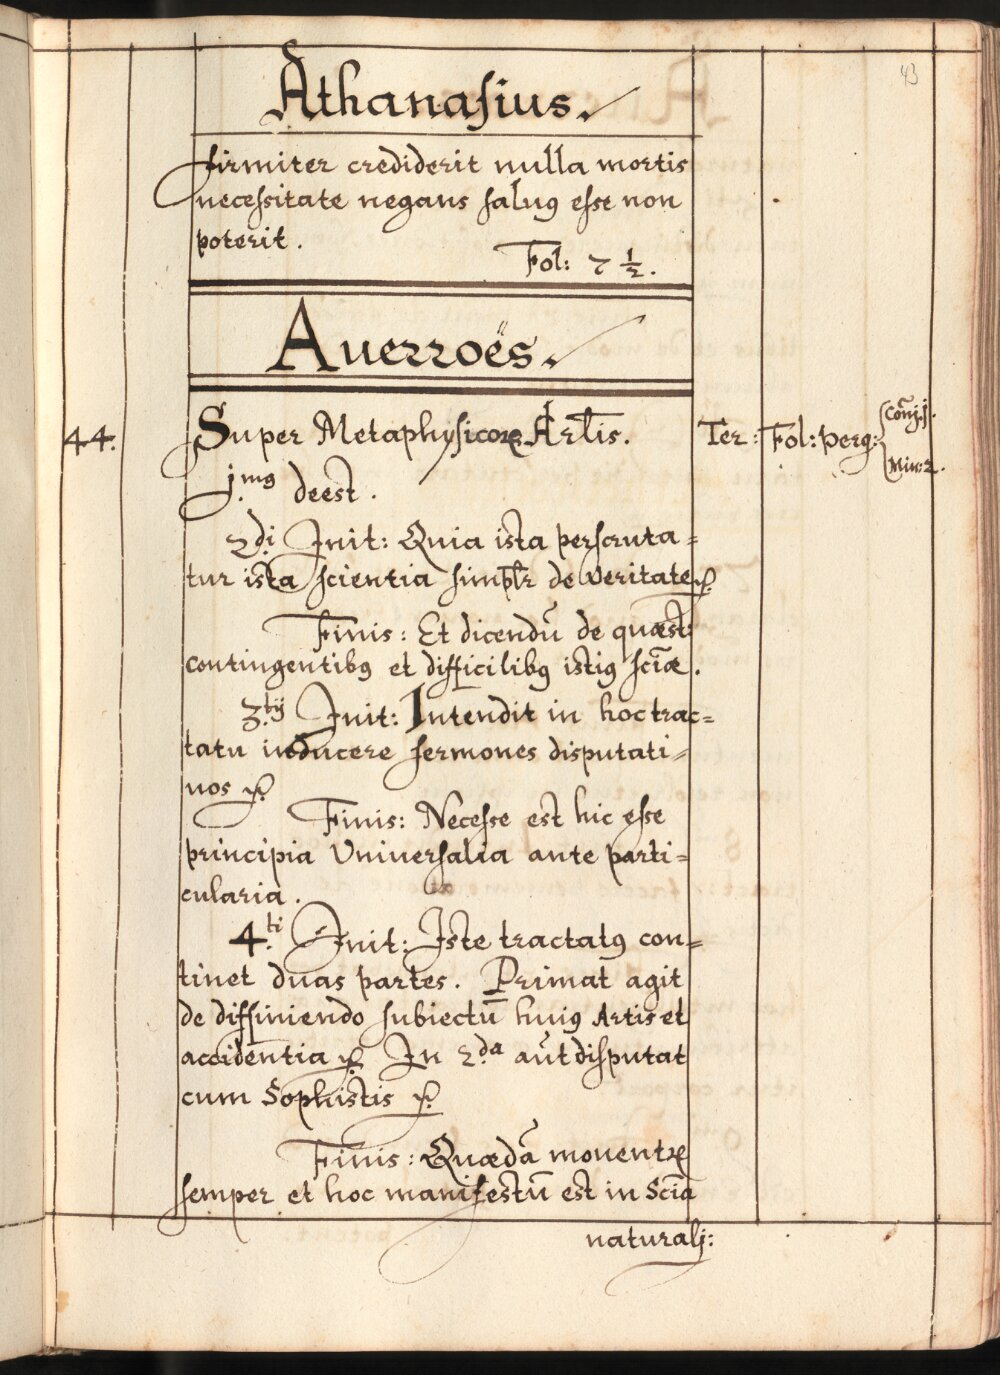 43
Athanasius.
firmiter crediderit nulla mortis
necessitate negans saluꝰ esse non
poterit.
Fol: 7 1/2.
Auerroës.
44. Super Metaphysicoꝝ Artis. Ter: Fol: perg:
j.mꝰ deest.
2di Init: Quia ista perscruta=
tur ista scientia simplr de veritate
Finis: Et dicendū de quæst:
contingentibꝰ et difficilibꝰ istiꝰ sciæ.
3.tij Init: Intendit in hoc trac=
tatu inducere sermones disputati=
uos
Finis: Necesse est hic esse
principia Vniuersalia ante parti=
cularia.
4.ti Init: Iste tractatꝰ con=
tinet duas partes. Prima agit
de diffiniendo subiectū huiꝰ Artis et
accidentia In 2da aūt disputat
cum Sophistis
Finis: Quædā mouent
semper et hoc manifestū est in Sciā
naturalj: